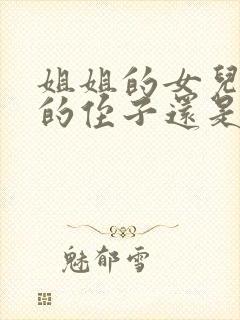 姐姐的女兒
的侄子還是
魅郁雪